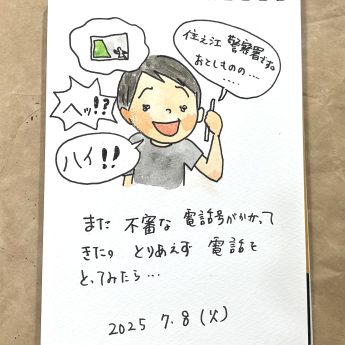 住之江警察署です。
おとしものの....
.....
ヘッ!?
ハイ!!
また 不審な 電話号がかかって
きたの とりあえず 電話を
とってみたら...
2025 7.8 (火)